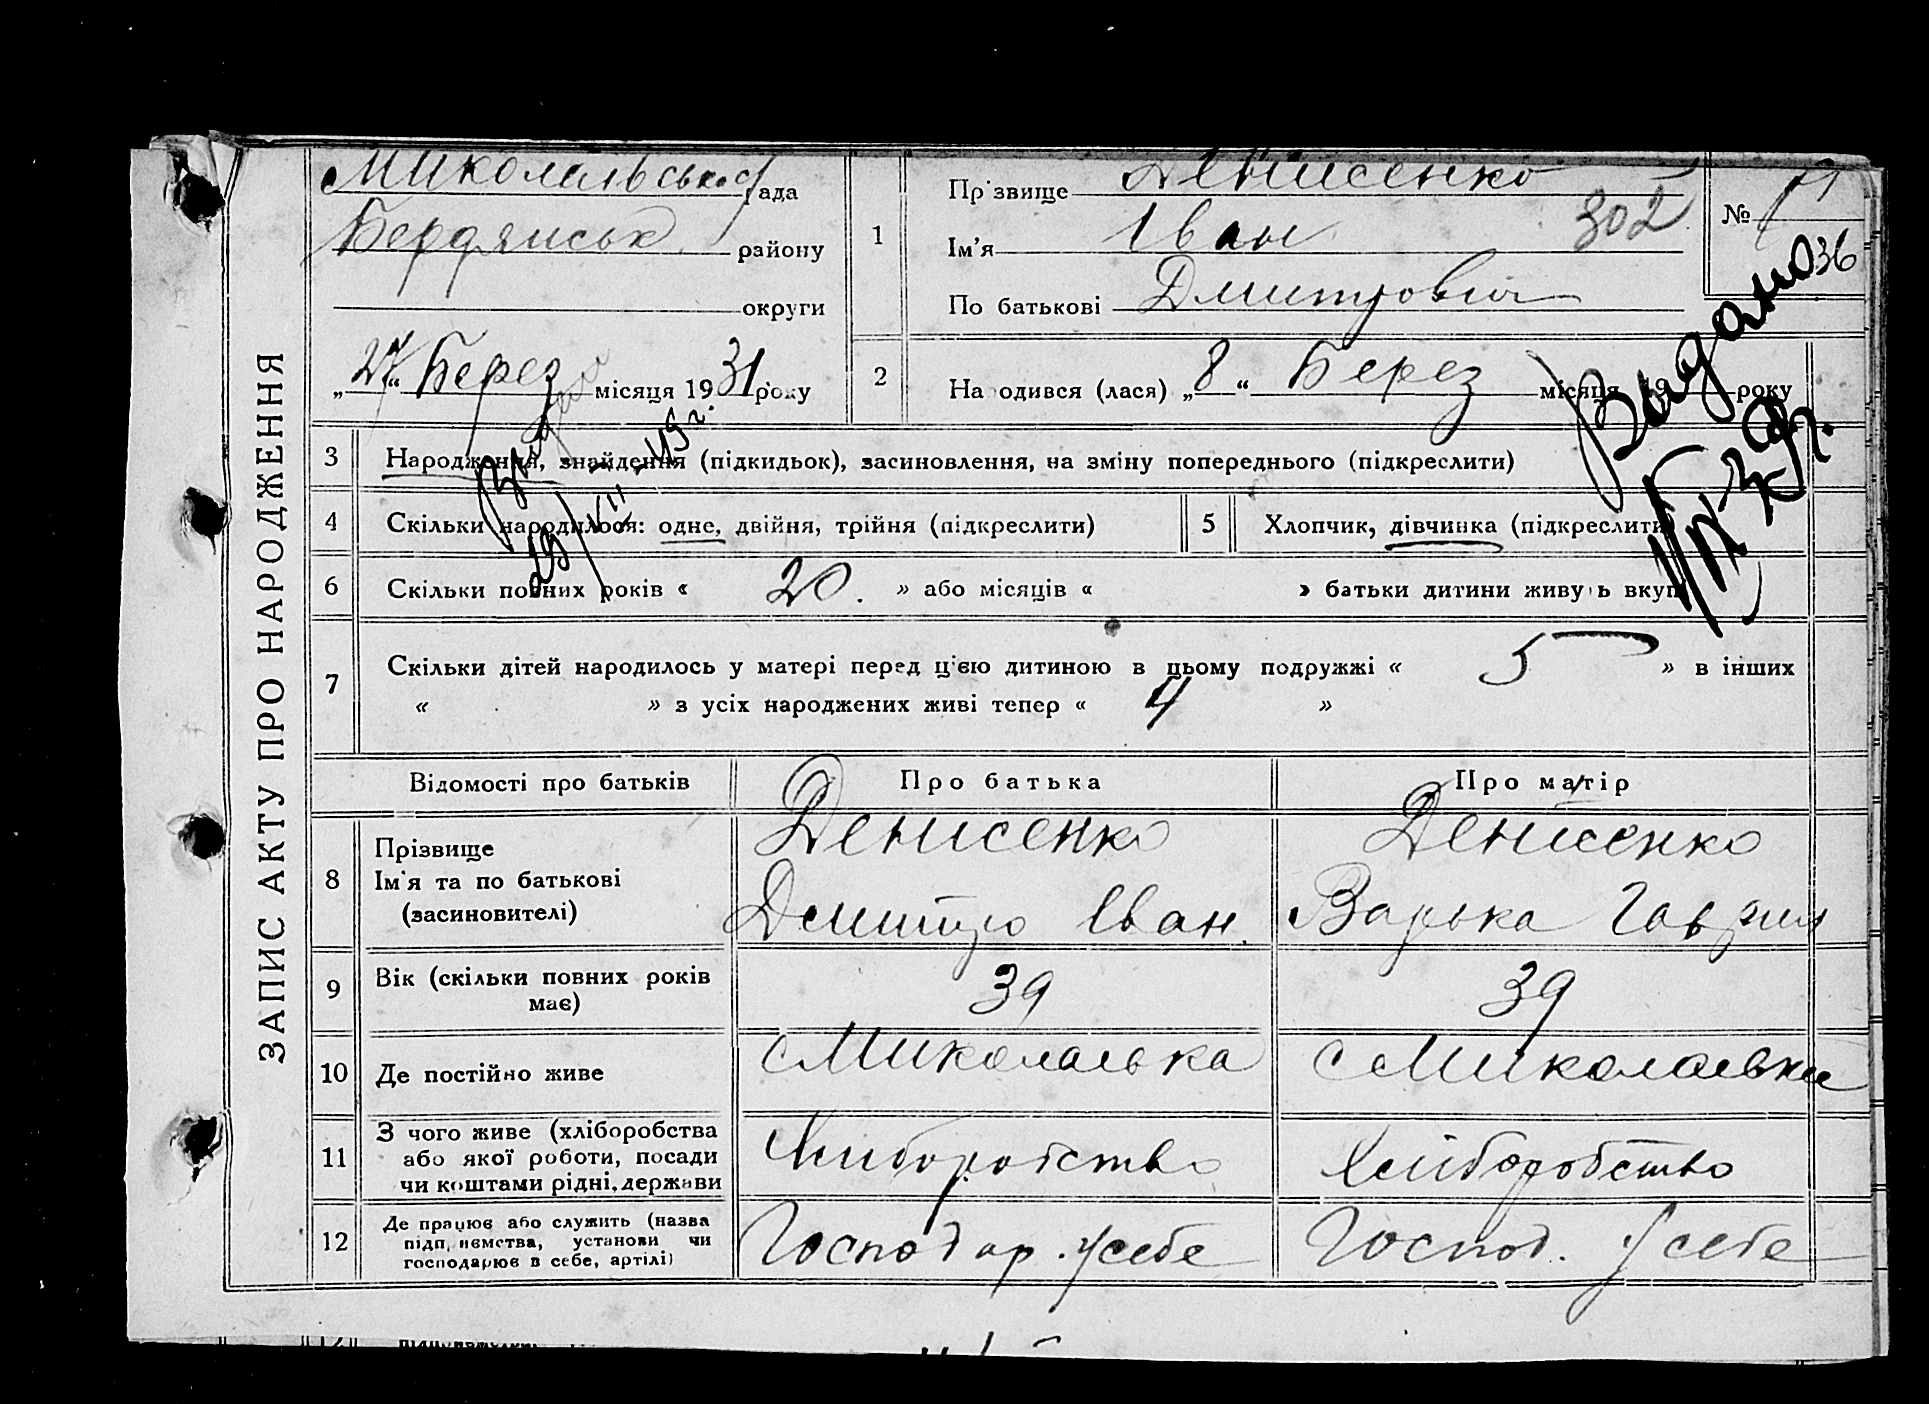 ЗАПИС АКТУ ПРО НАРОДЖЕННЯ
Миколаївськ рада
Бердянськ району
округи
„27“ Берез місяця 1931 року
1
Прізвище Денисенко
Ім’я Іван 302
По батькові Дмитрович
№
36
2 Народився (лася) „8“ Берез місяця 19 року
Видано
29/VII-49 г.
3 Народження, знайдення (підкидьок), засиновлення, на зміну попереднього (підкреслити)
4 Скільки народилося: одне, двійня, трійня (підкреслити) 5 Хлопчик, дівчинка (підкреслити)
6 Скільки повних років « 20. » або місяців « » батьки дитини живуть вкупі
7 Скільки дітей народилось у матері перед цією дитиною в цьому подружжі « 5 » в інших
« » з усіх народжених живі тепер « 4 »
Відомості про батьків Про батька Про матір
8 Прізвище Денисенко Денисенко
Ім’я та по батькові Дмитро Іван. Варька Гаврил
(засновителі)
9 Вік (скільки повних років має) 39 39
10 Де постійно живе с Миколаївка с Миколаевка
11 З чого живе (хліборобства або якої роботи, посади чи коштами рідні, держави Хліборобство Хліборобство
12 Де працює або служить (назва підприємства, установи чи господарює в себе, артілі) Господар. у себе Господ. у себе